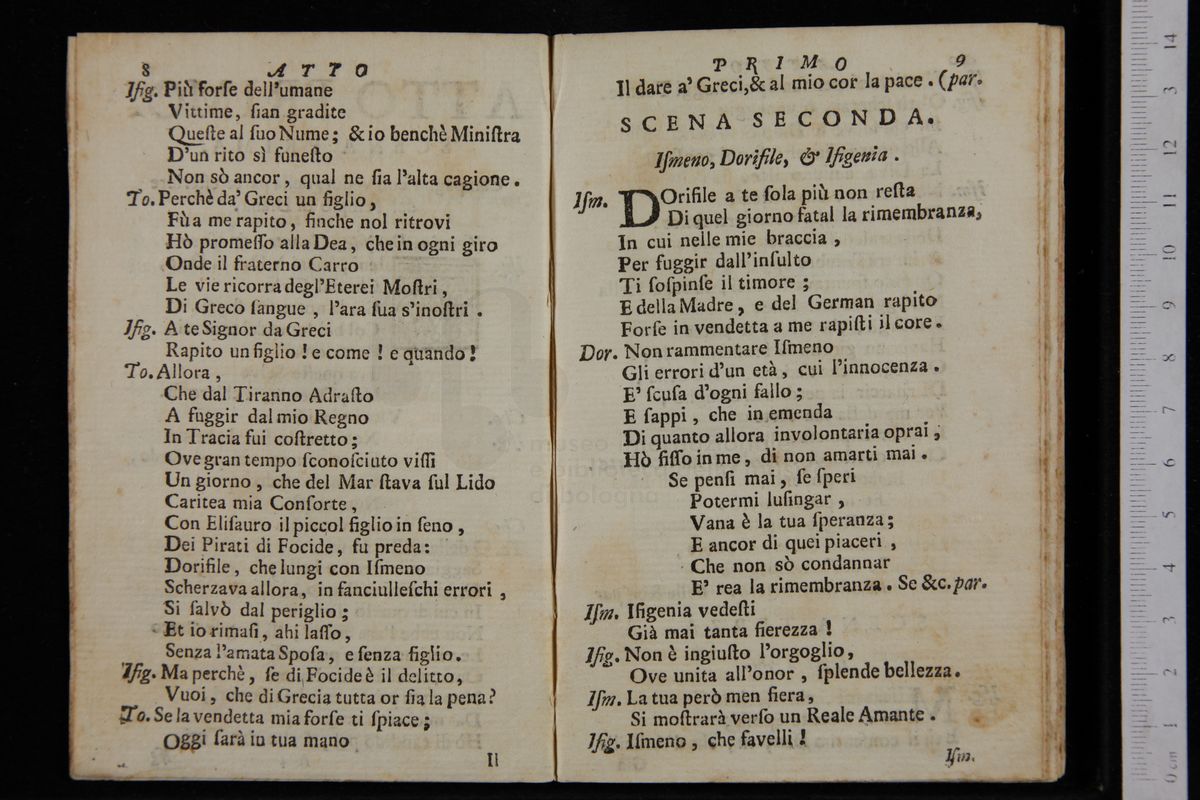 8 ATTO
Isig. Più forſe dell'umane
Vittime, ſian gradite
Queſte al ſuo Nume; & io benchè Miniſtra
D'un rito sì funeſto
Non sò ancor, qual ne ſia l'alta cagione.
To. Perchè da' Greci un figlio,
Fù a me rapito, finche nol ritrovi
Hò promeſſo alla Dea, che in ogni giro
Onde il fraterno Carro
Le vie ricorra degl'Eterei Moſtri,
Di Greco ſangue, l'ara ſua s'inoſtri.
Ifig. A te Signor da Greci
Rapito un figlio! e come! e quando!
To. Allora,
Che dal Tiranno Adraſto
A fuggir dal mio Regno
In Tracia fui coſtretto;
Ove gran tempo ſconoſciuto viſſi
Un giorno, che del Mar ſtava ſul Lido
Caritea mia Conſorte,
Con Eliſauro il piccol figlio in ſeno,
Dei Pirati di Focide, fu preda:
Dorifile, che lungi con Iſmeno
Scherzava allora, in fanciulleſchi errori,
Si ſalvò dal periglio;
Et io rimaſi, ahi laſſo,
Senza l'amata Spoſa, e ſenza figlio.
Ifig. Ma perchè, ſe di Focide è il delitto,
Vuoi, che di Grecia tutta or ſia la pena?
To. Se la vendetta mia forſe ti ſpiace;
Oggi ſarà in tua mano
Il
PRIMO 9
Il dare a' Greci, & al mio cor la pace. (par.
SCENA SECONDA.
Iſmeno, Dorifile, & Ifigenia.
Iſm. DOrifile a te ſola più non reſta
Di quel giorno fatal la rimembranza,
In cui nelle mie braccia,
Per fuggir dall'inſulto
Ti ſoſpinſe il timore;
E della Madre, e del German rapito
Forſe in vendetta a me rapiſti il core.
Dor. Non rammentare Iſmeno
Gli errori d'un età, cui l'innocenza.
E' ſcuſa d'ogni fallo;
E ſappi, che in emenda
Di quanto allora involontaria oprai,
Hò fiſſo in me, di non amarti mai.
Se penſi mai, ſe ſperi
Potermi luſingar,
Vana è la tua ſperanza;
E ancor di quei piaceri,
Che non sò condannar
E' rea la rimembranza. Se &c. par.
Iſm. Ifigenia vedeſti
Già mai tanta fierezza!
Ifig. Non è ingiuſto l'orgoglio,
Ove unita all'onor, ſplende bellezza.
Iſm. La tua però men fiera,
Si moſtrarà verſo un Reale Amante.
Ifig. Iſmeno, che favelli!
Iſm.
museo
e bibliot
di bologna
0 cm 1 2 3 4 5 6 7 8 9 10 11 12 3 14